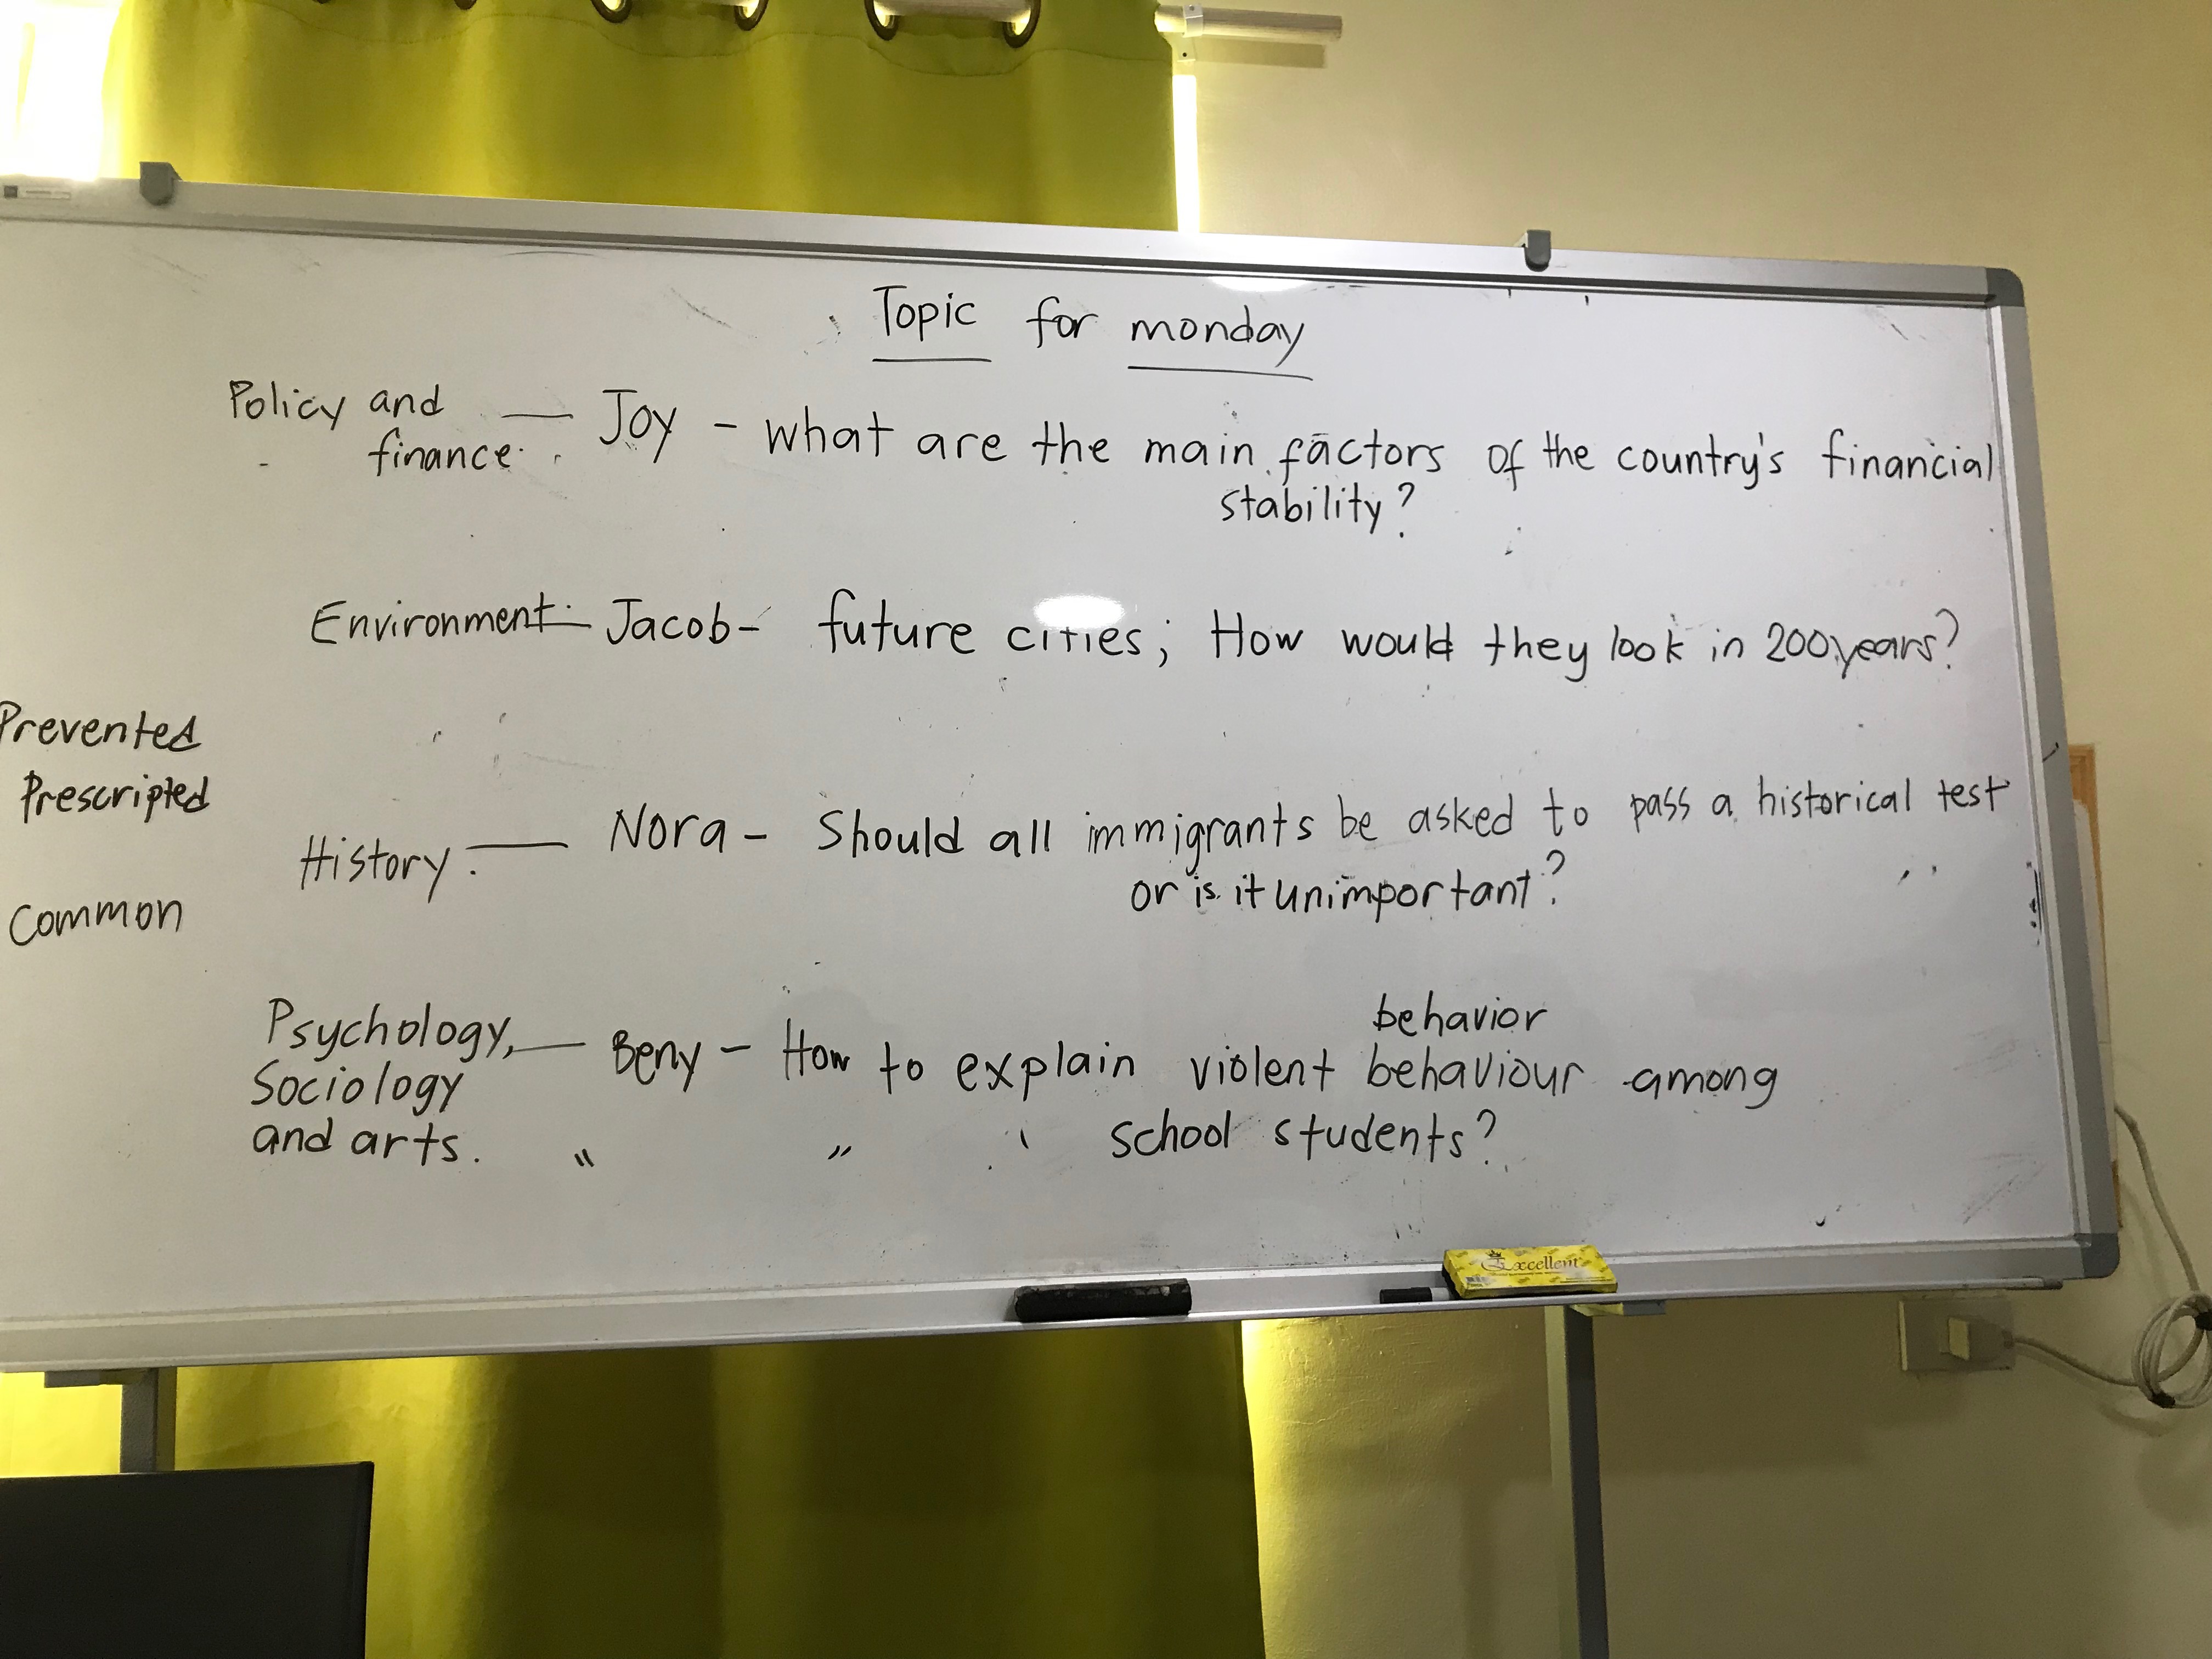 Topic for monday
Policy and — Joy - what are the main factors of the country's financial
finance.
stability?
Environment. — Jacob - future cities; How would they look in 200 years?
Prevented
Prescripted
History. — Nora - Should all immigrants be asked to pass a historical test
or is it unimportant?
Common
behavior
Psychology, — Beny - How to explain violent behaviour among
Sociology
and arts. " " school students?
Excellent